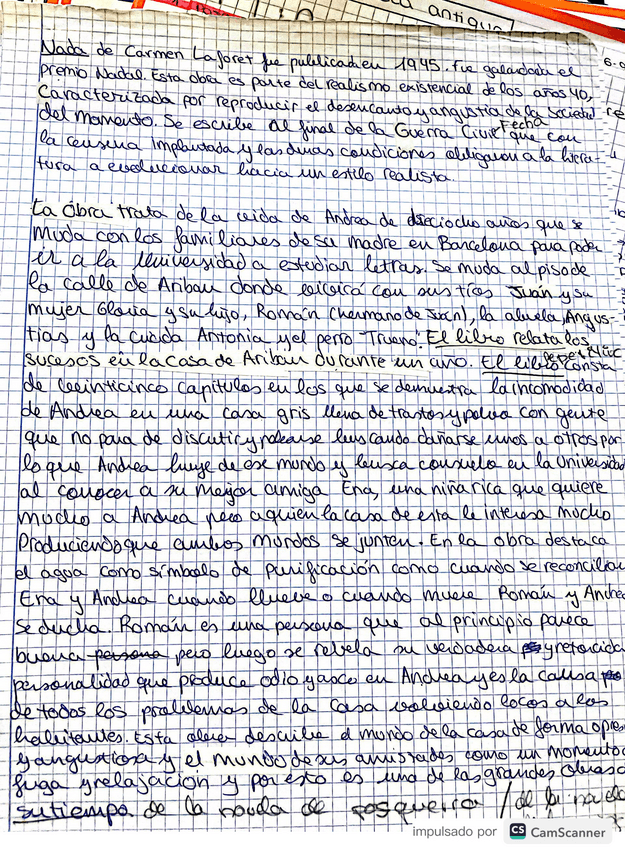 antigua
Nada de Carmen Laforet fue publicada en 1945. fue galardonada el
premio Nadal. Esta obra es parte del realismo existencial de los años 40,
Caracterizada por reproducir el desencanto y angustia de la sociedad
del momento. Se escribe al final de la Guerra Civil que con
Fecha
la censura implantada y las duras condiciones obligaron a la litera-
tura a evolucionar hacia un estilo realista.
La obra trata de la vida de Andrea de dieciocho años que se
muda con los familiares de su madre en Barcelona para poder
ir a la Universidad a estudiar letras. Se muda al piso de
la calle de Aribau donde vivirá con sus tíos Juán y su
mujer Gloria y su hijo, Román (hermano de Juán), la abuela, Angus-
tias y la criada Antonia y el perro "Trueno". El libro relata los
sucesos en la casa de Aribau durante un año. El libro consta
de veinticinco capítulos en los que se demuestra la incomodidad
de Andrea en una casa gris llena de trastos y polvo con gente
que no para de discutir y pelearse buscando dañarse unos a otros por
lo que Andrea huye de ese mundo y busca consuelo en la Universidad
al conocer a su mejor amiga Ena, una niña rica que quiere
mucho a Andrea pero a quien la casa de esta le interesa mucho
Produciendo que ambos mundos se junten. En la obra destaca
el agua como símbolo de purificación como cuando se reconcilian
Ena y Andrea cuando llueve o cuando muere Román y Andrea
se ducha. Román es una persona que al principio parece
buena persona pero luego se rebela su verdadera y retorcida
personalidad que produce odio y asco en Andrea y es la causa
de todos los problemas de la casa volviendo locos a los
habitantes. Esta obra describe el mundo de la casa de forma opre
y angustiosa y el mundo de sus amistades como un momento
fuga y relajación y por esto es una de las grandes obras
su tiempo de la novela de posguerra
impulsado por CS CamScanner